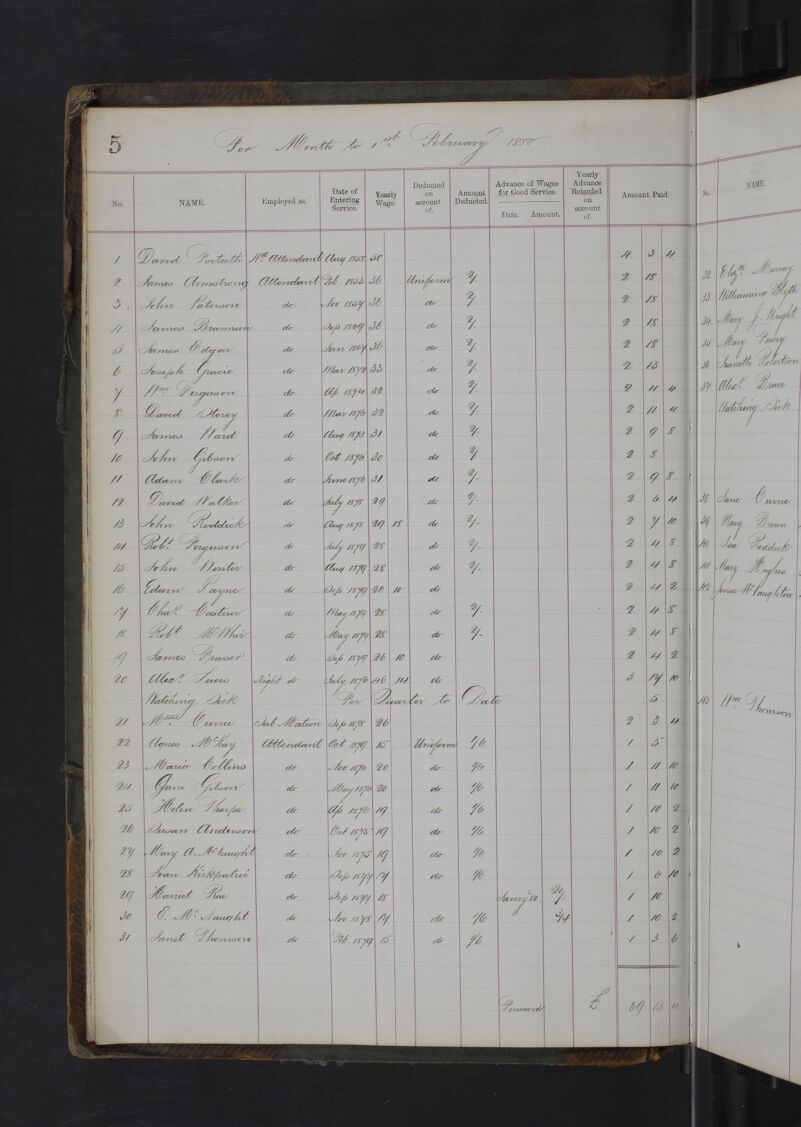 5
For Month to 1st February 1880
No. NAME. Employed as. Date of Entering Service. Yearly Wage. Deducted on account of. Amount Deducted. Advance of Wages for Good Service. Date. Amount. Yearly Advance Retained on account of. Amount Paid.
1 David Hd. Attendant Aug 1858 50 4 3 4
2 James Armstrong Attendant Feb 1853 36 Uniform 2/ 2 18
3 John Paterson do Nov 1854 36 do 2/ 2 18
4 James Brannan do Sep 1869 36 do 2/ 2 18
5 James Edgar do Jan 36 do 2/ 2 18
6 Joseph Gracie do Mar 1872 33 do 2/ 2 13
7 Wm Ferguson do Ap 1874 32 do 2/ 2 11 4
8 David Storey do Mar 1876 32 do 2/ 2 11 4
9 James Ward do Aug 1873 31 do 2/ 2 9 8
10 John Gibson do Oct 1876 30 do 2/ 2 8
11 Adam Clark do June 1876 31 do 2/- 2 9 8
12 David Walker do July 1878 29 do 2/- 2 6 4
13 John Roddick do Aug 1875 29 18 do 2/- 2 7 10
14 Robt. Ferguson do July 1879 28 do 2/- 2 4 8
15 John Winter do Aug 1879 28 do 2/- 2 4 8
16 Edwin Payne do Sep 1879 26 10 do 2 4 2
17 Chas. do May 1879 28 do 2/- 2 4 8
18 Robt McWhir do May 1879 28 do 2/- 2 4 8
19 James Fraser do Sep 1879 26 10 do 2 4 2
20 Alexr. Lewis Night do July 1876 46 14 do 3 17 10
Watching Sick For Quarter to Date 5
21 Currie Sub Matron Sep 1878 26 2 3 4
22 Agnes McKay Attendant Oct 1879 15 Uniform 1/6 1 5
23 Maria Collins do Nov 1870 20 do 1/6 1 11 10
24 Jane Gibson do May 1870 20 do 1/6 1 11 10
25 Helen Thorpe do Ap 1876 19 do 1/6 1 10 2
26 Susan Anderson do Oct 1875 19 do 1/6 1 10 2
27 Mary A. McNaught do Nov 1875 19 do 1/6 1 10 2
28 Joan Kirkpatric do Sep 1877 17 do 1/6 1 6 10
29 Harriet Rae do Sep 1877 18 Jany 80 20/ 1 10
30 E. McNaught do Nov 1878 17 do 1/6 1 10 2
31 Janet Thomson do Feb 1879 15 do 1/6 1 3 6
Forward £ 69 15 4
No. NAME.
32 Elizth Murray
33 Williamina Blyth
34 Mary J. Wright
35 Mary
36 Jeanette Robertson
37 Alexr. Bruce
Watching Sick
38 Jane Currie
39 Mary Brown
40 Isa Roddick
41 Mary Hughes
42 Jessie McNaughton
43 Wm Thomson